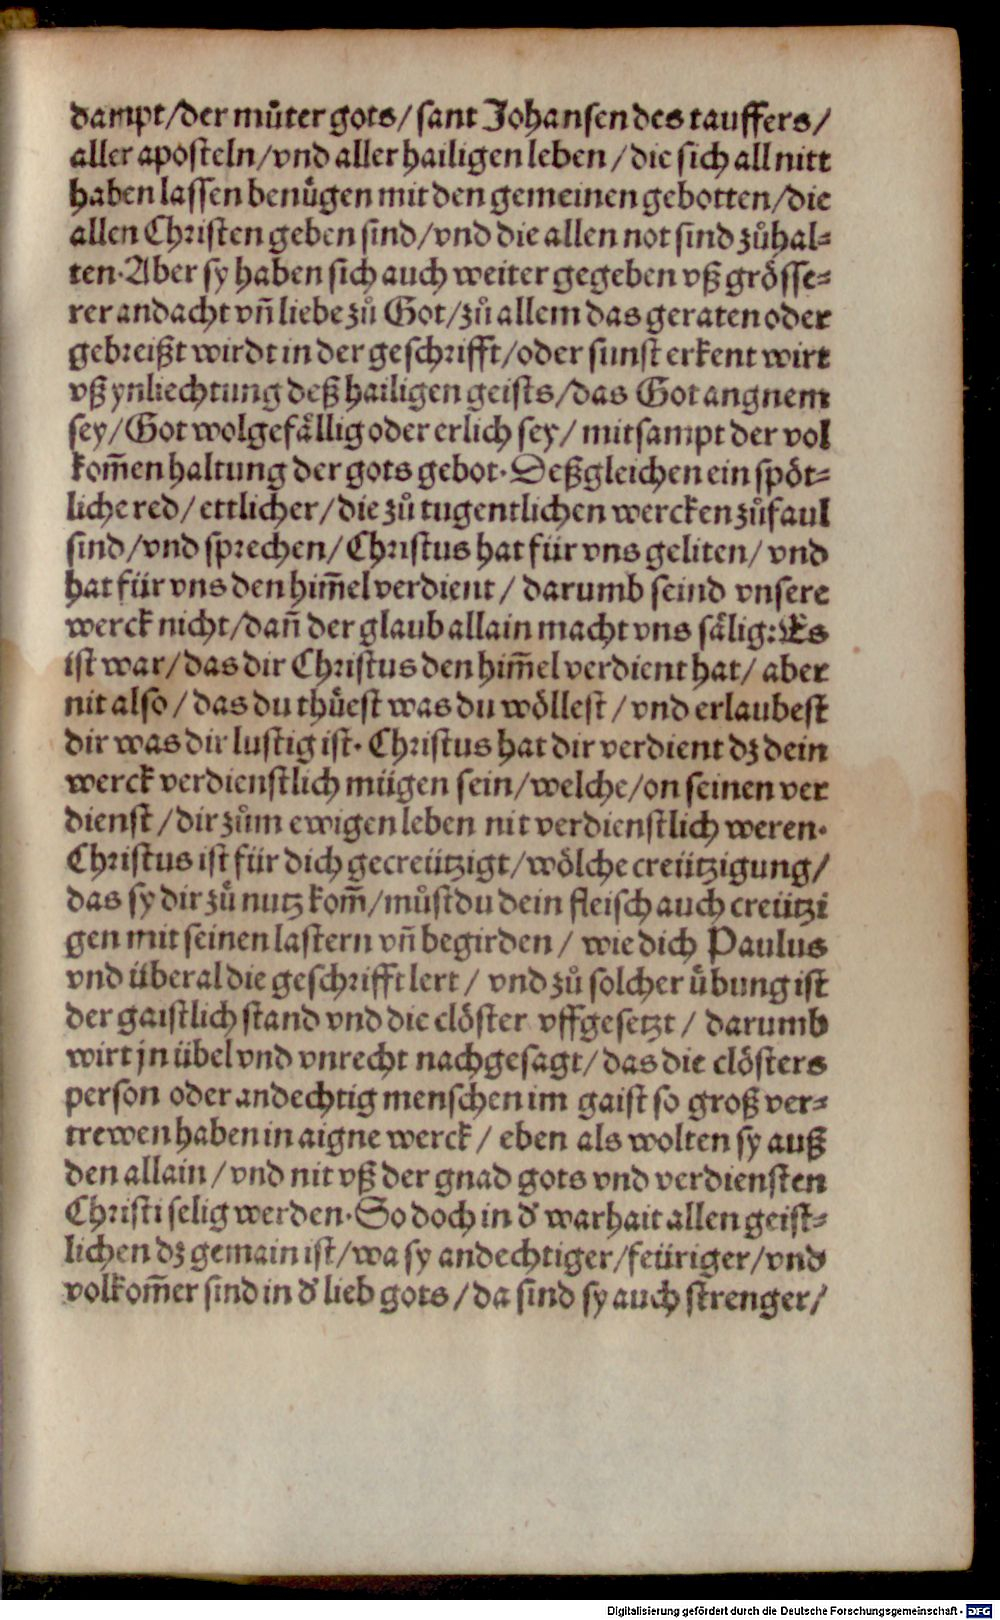 dampt/der můter gots/ sant Johansen des tauffers/
aller aposteln/vnd aller hailigen leben/die sich all nitt
haben lassen benůgen mit den gemeinen gebotten/die
allen Christen geben sind/vnd die allen not sind zůhal⸗
ten. Aber sy haben sich auch weiter gegeben vß grösse⸗
rer andacht vñ liebe zů Got/zů allem das geraten oder
gebreißt wirdt in der geschrifft/oder sunst erkent wirt
vß ynliechtung deß hailigen geists/das Got angnem
sey/Got wolgefällig oder erlich sey/ mitsampt der vol
kom̃en haltung der gots gebot. Deßgleichen ein spöt⸗
liche red/ ettlicher/die zů tugentlichen wercken zůfaul
sind/vnd sprechen/Christus hat für vns geliten/ vnd
hat für vns den him̃el verdient/ darumb seind vnsere
werck nicht/dañ der glaub allain macht vns sälig: Es
ist war/das dir Christus den him̃el verdient hat/ aber
nit also/das du thůest was du wöllest/vnd erlaubest
dir was dir lustig ist. Christus hat dir verdient dz dein
werck verdienstlich mügen sein/welche/on seinen ver
dienst/dir zům ewigen leben nit verdienstlich weren.
Christus ist für dich gecreützigt/wölche creützigung/
das sy dir zů nutz kom̃/můst du dein fleisch auch creützi
gen mit seinen lastern vñ begirden/ wie dich Paulus
vnd überal die geschrifft lert/ vnd zů solcher übung ist
der gaistlich stand vnd die clöster vffgesetzt/ darumb
wirt jn übel vnd vnrecht nachgesagt/das die clösters
person oder andechtig menschen im gaist so groß ver⸗
trewen haben in aigne werck/ eben als wolten sy auß
den allain/vnd nit vß der gnad gots vnd verdiensten
Christi selig werden. So doch in d' warhait allen geist⸗
lichen dz gemain ist/wa sy andechtiger/feüriger/vnd
volkom̃er sind in d' lieb gots/da sind sy auch strenger/
Digitalisierung gefördert durch die Deutsche Forschungsgemeinschaft - DFG